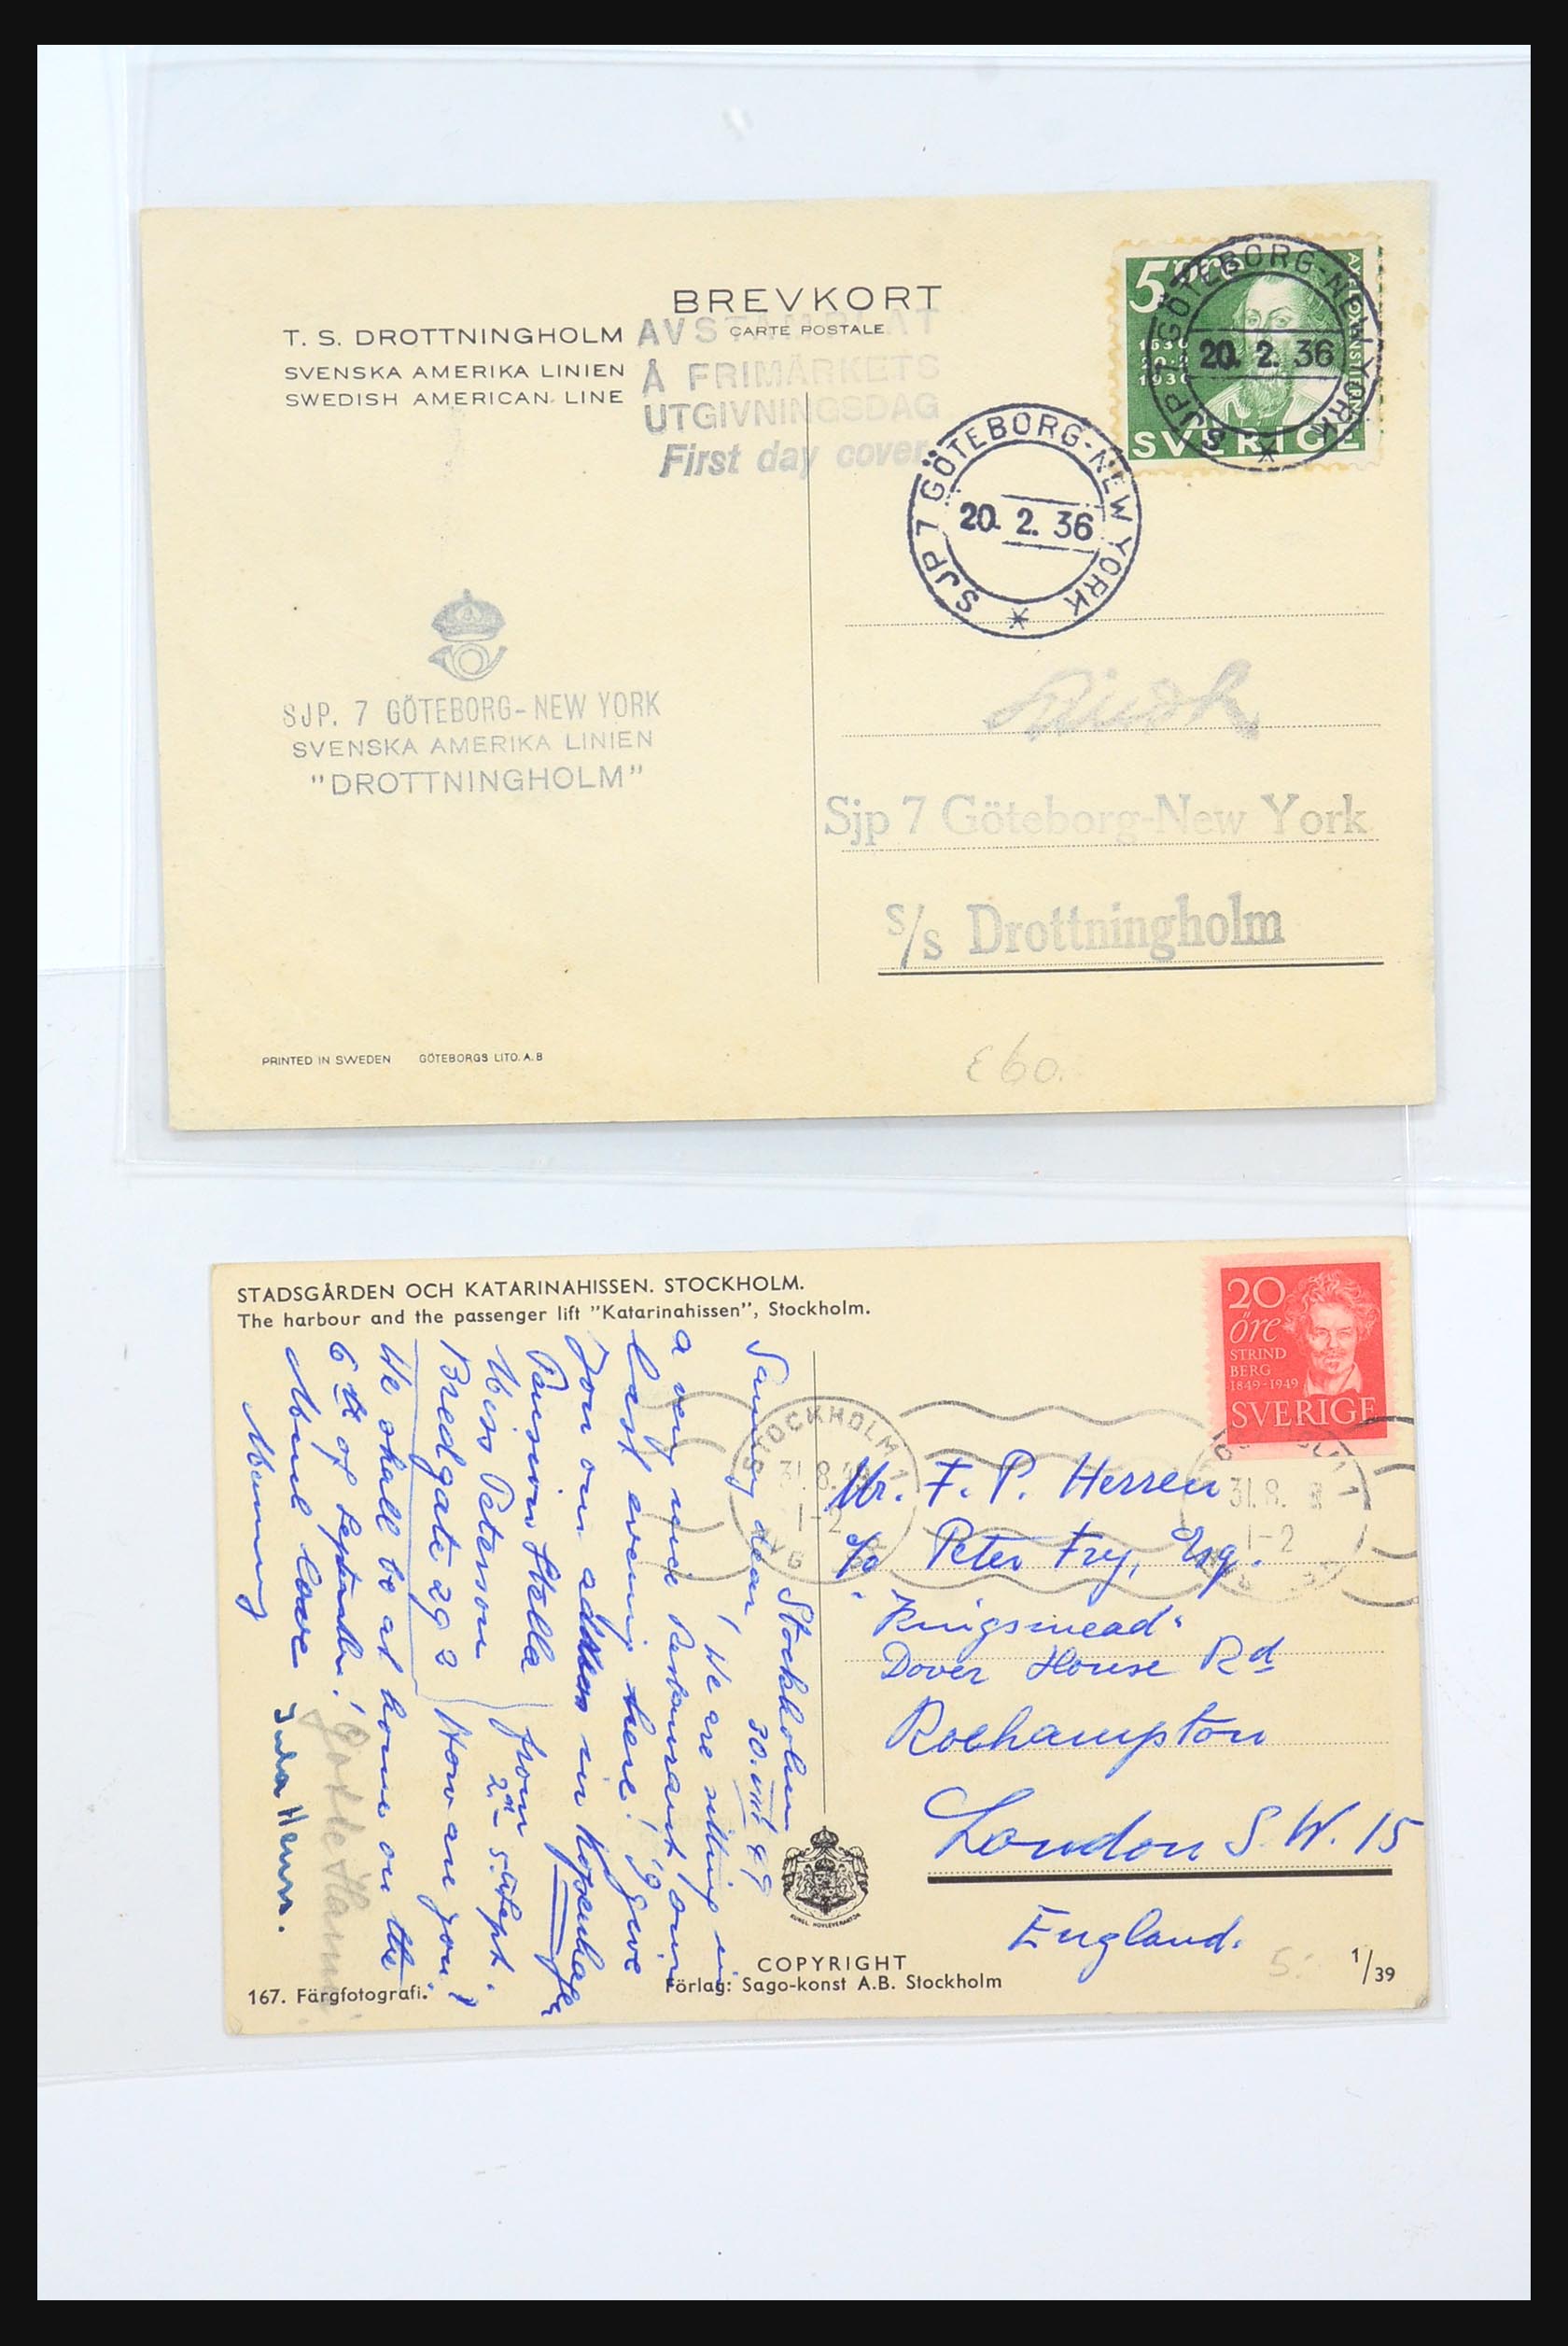 BREVKORT
CARTE POSTALE
T. S. DROTTNINGHOLM
SVENSKA AMERIKA LINIEN
SWEDISH AMERICAN LINE
AVSTÄMPLAT
Å FRIMÄRKETS
UTGIVNINGSDAG
First day cover
5 öre
1636
1936
SVERIGE
SJP 7 GÖTEBORG-NEW YORK
20. 2. 36
SJP 7 GÖTEBORG-NEW YORK
20. 2. 36
SJP. 7 GÖTEBORG-NEW YORK
SVENSKA AMERIKA LINIEN
"DROTTNINGHOLM"
Sjp 7 Göteborg-New York
s/s Drottningholm
PRINTED IN SWEDEN GÖTEBORGS LITO. A. B
£60.
STADSGÅRDEN OCH KATARINAHISSEN. STOCKHOLM.
The harbour and the passenger lift "Katarinahissen", Stockholm.
20
öre
STRIND
BERG
1849-1949
SVERIGE
STOCKHOLM 1
31.8.49
1-2
31.8.
1-2
Stockholm
30. VIII 49
Sammy dear, We are sitting in
a very nice Restaurant our
last evening here! I give
you our address in Kopenhagen
Pension Stella from
Miss Peterson 2n - 5. Sept.
Bredgate 29 2 How are you?
We shall be at home on the
6th of September!
Much love
Mummy
Mr. F. P. Herren
c/o Peter Fry, Esq.
"Kingsmead"
Dover House Rd
Roehampton
London S. W. 15
England.
COPYRIGHT
167. Färgfotografi.
Förlag: Sago-konst A.B. Stockholm
5.-
1/39